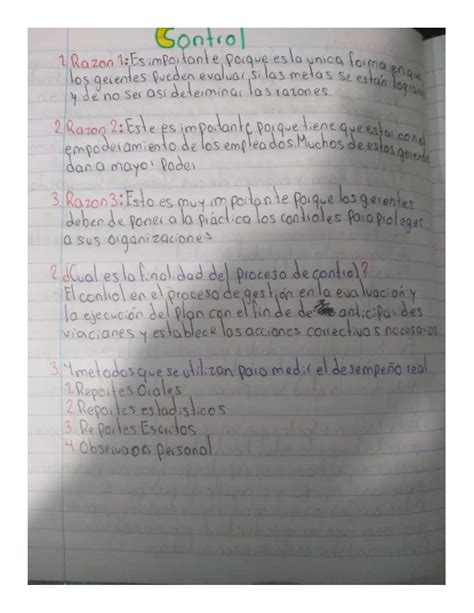 Control
1. Razon 1: Es importante porque es la unica forma en que
los gerentes pueden evaluar si las metas se están logrando
y de no ser asi determinar las razones.
2. Razon 2: Este es importante porque tiene que estar con el
empoderamiento de los empleados. Muchos de estos gerentes
dan a mayor poder
3. Razon 3: Esto es muy importante porque los gerentes
deben de poner a la práctica los controles para proteger
a sus organizaciones
2. ¿Cual es la finalidad del proceso de control?
El control en el proceso de gestión en la evaluación y
la ejecución del plan con el fin de de anticipar des
viaciones y establece las acciones correctivas necesarias
3. 4 metodos que se utilizan para medir el desempeño real
1. Reportes Orales
2. Reportes estadisticos
3. Reportes Escritos
4. Observacion personal